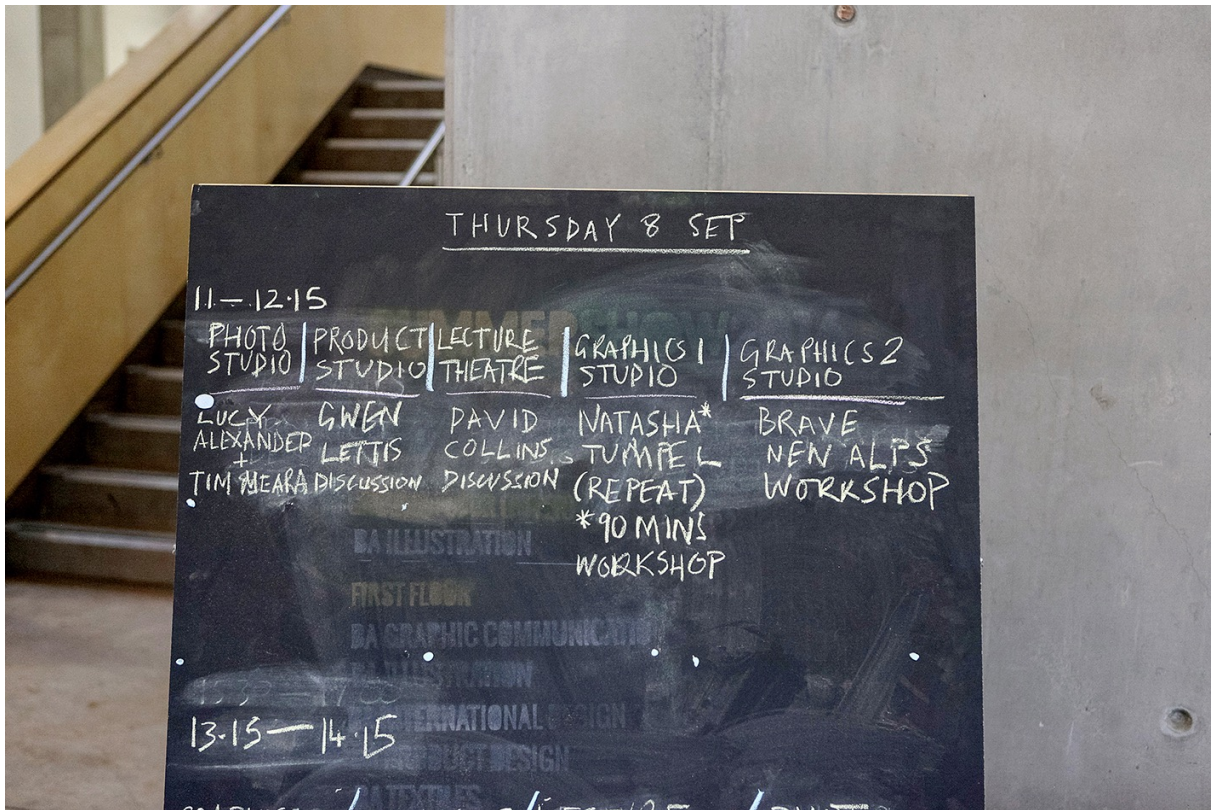 THURSDAY 8 SEP
11 — 12.15
PHOTO STUDIO
PRODUCT STUDIO
LECTURE THEATRE
GRAPHICS 1 STUDIO
GRAPHICS 2 STUDIO
LUCY
ALEXANDER
+
TIM MEARA
GWEN
LETTIS
DISCUSSION
DAVID
COLLINS
DISCUSSION
NATASHA*
TUMPEL
(REPEAT)
*90 MINS
WORKSHOP
BRAVE
NEW ALPS
WORKSHOP
BA ILLUSTRATION
FIRST FLOOR
BA GRAPHIC COMMUNICATIO
ILLUSTRATION
13.15 — 14.15